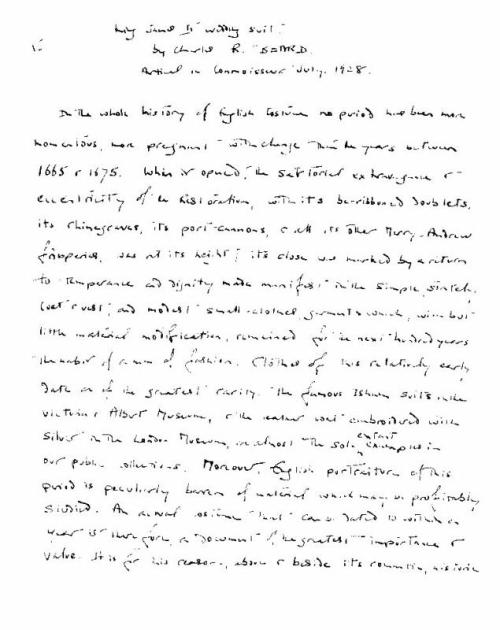 King James II's wedding suit.
by Charles R. BEARD.
Article in Connoisseur July, 1928.
In the whole history of English Costume no period has been more
momentous, more pregnant with change than the years between
1665 & 1675. When it opened, the sartorial extravagance &
eccentricity of the Restoration, with its be-ribboned doublets,
its rhinegraves, its port-cannons, & all its other Merry-Andrew
fripperies, was at its height; its close was marked by a return
to temperance and dignity made manifest in the simple, stately
coat & vest, and modest small-clothes, garments which, with but
little material modification, remained for the next hundred years
the habit of a man of fashion. Clothes of this relatively early
date are of the greatest rarity. The famous Isham suits in the
Victoria & Albert Museum, & the leather coat embroidered with
silver in the London Museum, are almost the sole extant examples in
our public collections. Moreover, English portraiture of this
period is peculiarly barren of material which may be profitably
studied. An actual costume that can be dated to within a
year is therefore, a document of the greatest importance &
value. It is for this reason, above & beside its romantic, historic